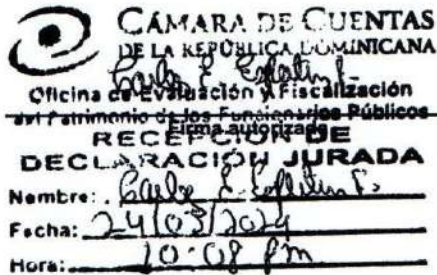 CÁMARA DE CUENTAS
DE LA REPÚBLICA DOMINICANA
Oficina de Evaluación y Fiscalización
del Patrimonio de los Funcionarios Públicos
Firma autorizada
RECEPCIÓN DE
DECLARACIÓN JURADA
Nombre:
Fecha: 24/03/2024
Hora: 10:08 pm